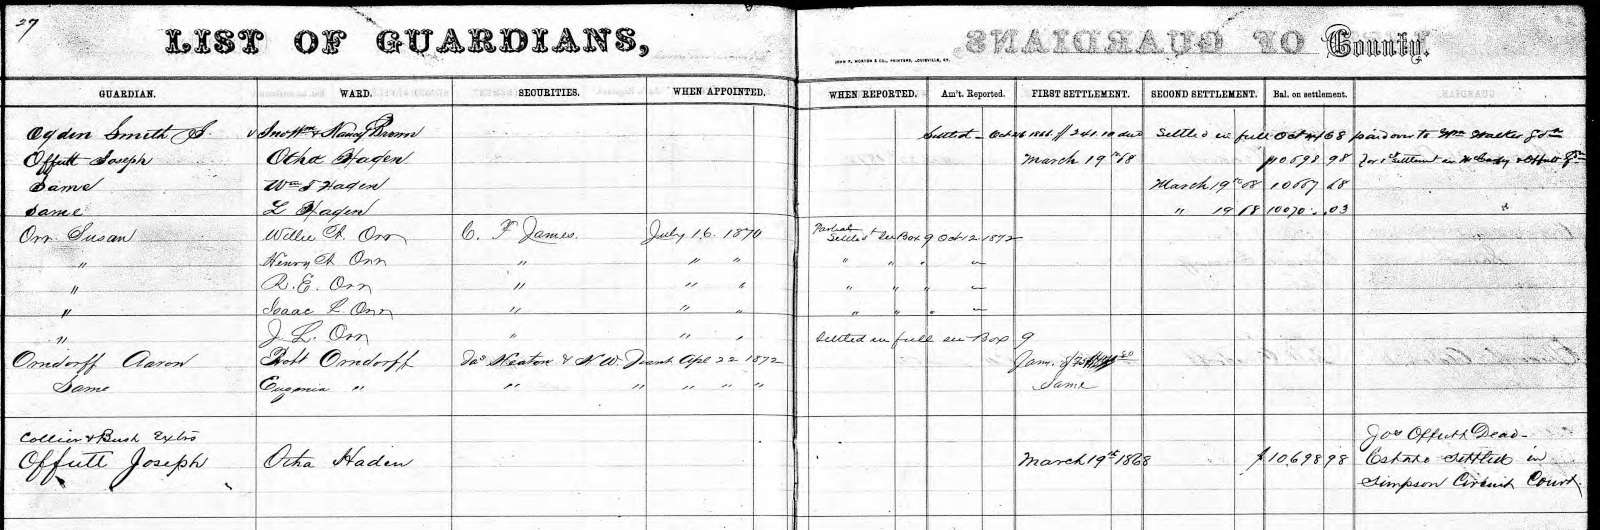 27
LIST OF GUARDIANS, County.
JOHN P. MORTON & CO., PRINTERS, LOUISVILLE, KY.
GUARDIAN. WARD. SECURITIES. WHEN APPOINTED. WHEN REPORTED. Am't. Reported. FIRST SETTLEMENT. SECOND SETTLEMENT. Bal. on settlement.
Ogden Smith S. Jno Wm & Nancy Brown Settled Oct 1866 $241.10 due Settled in full Oct 68 paid over to Wm Walker Gdn
Offutt Joseph Otha Hagen March 19th 68 $10698 98 for 1st settlement see &  Offutt Gdn
Same Wm S Hagen March 19th 68 10667 68
Same L Hagen " 19 68 10070 .03
Orr Susan Willie A. Orr C. F James. July 16. 1870 Partial Settlet see Box 9 Oct 12 1872
" Henry A Orr " " " " " " "
" R. E. Orr " " " " " " "
" Isaac L Orr " " " " " " "
" J. L. Orr " " " Settled in full see Box 9
Orndorff Aaron Robt Orndorff Jas Neaton & N. W. Grant Apl 22 1872 Jany 8/75
Same Eugenia " " " " " " Same
Collier & Bush Extrs
Offutt Joseph Otha Haden March 19th 1868 $10,698 98 Jos Offutt Dead- Estate settled in Simpson Circuit Court.